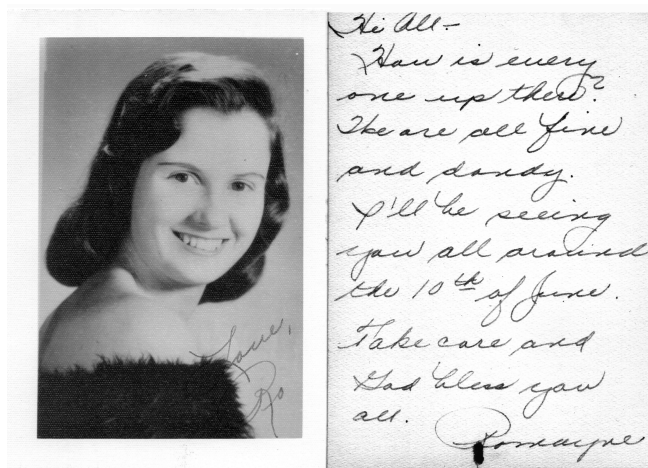 Love,
Ro
Hi All-
How is every
one up there?
We are all fine
and dandy.
I'll be seeing
you all around
the 10th of June.
Take care and
God bless you
all.
Romayne